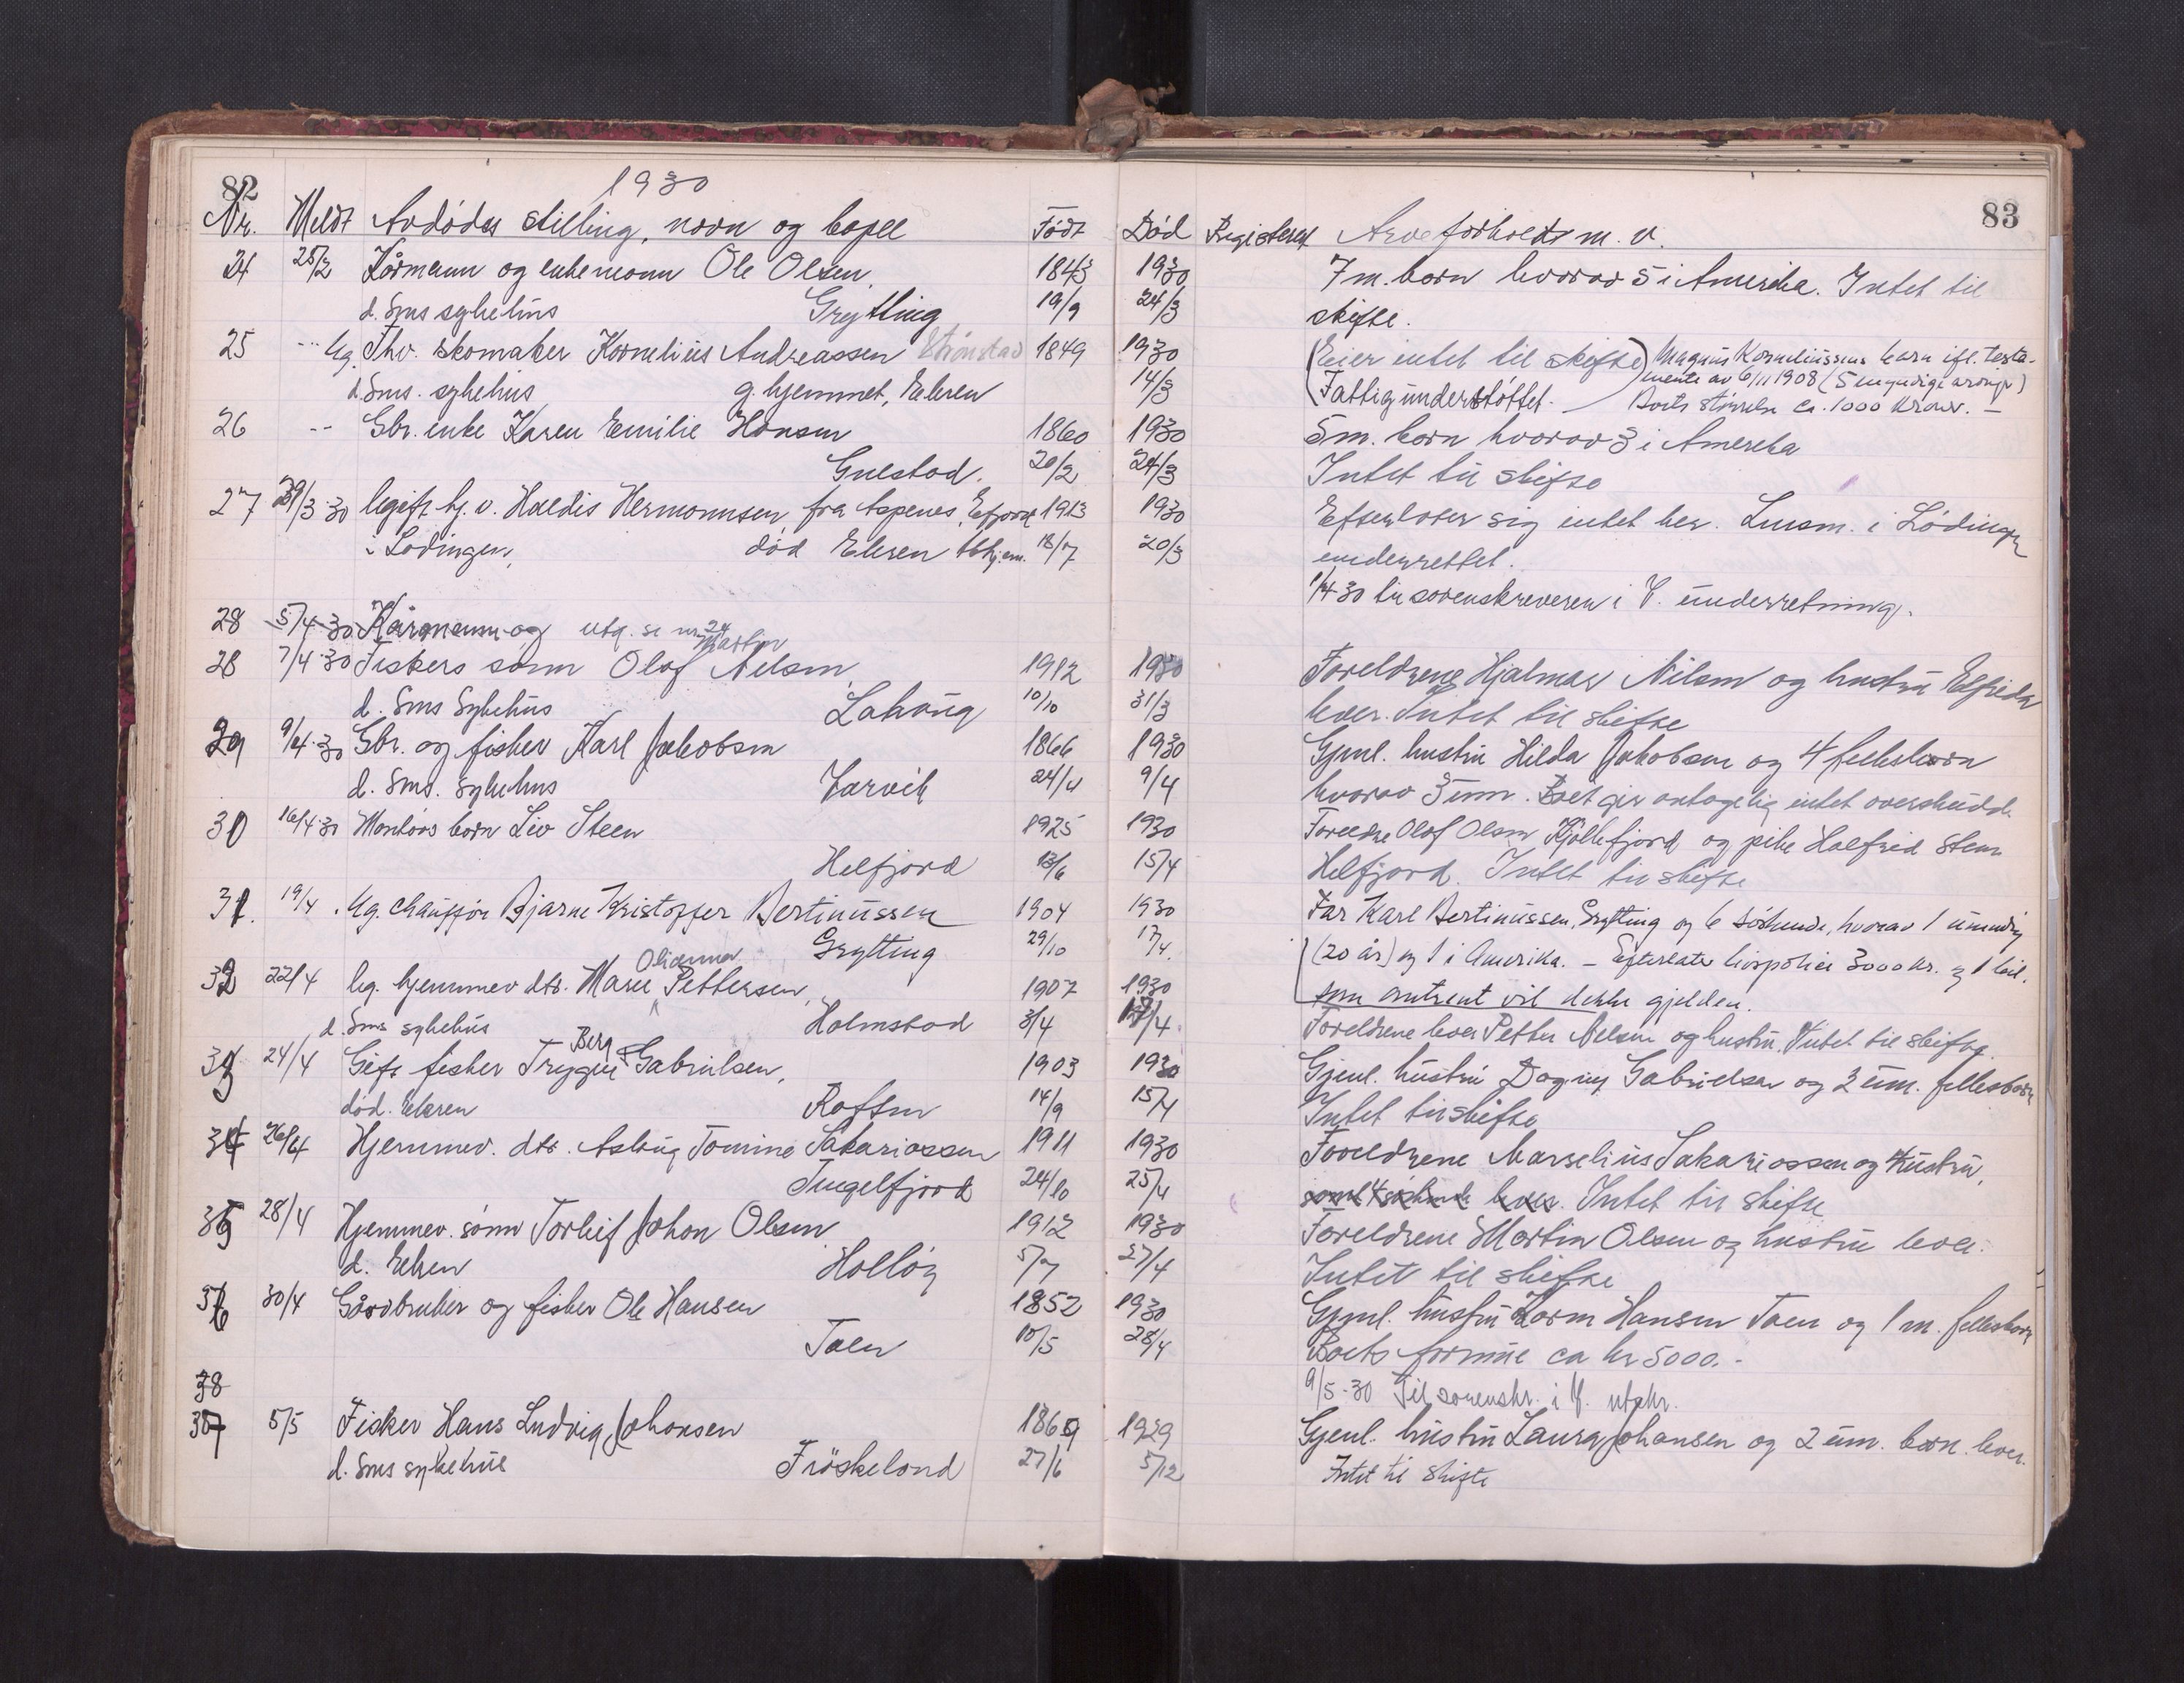 82
1930
83
Nr. Meldt Avdødes stilling, navn og bopel Født Død Registrert Arveforhold m. v.
24 25/3 Kårmann og enkemann Ole Olsen, 1843 1930 7 m. barn hvorav 5 i Amerika. Intet til
d. Sms sykehus Grytting 19/9 24/3 skifte.
25 -- Ug. Fhv. skomaker Kornelius Andreassen Strønstad 1849 1930 (Eier intet til skifte) Magnus Korneliussens barn ifl. testa-
d. Sms. sykehus g. hjemmet, Elsren 14/3 mente av 6/11 1908 (5 umyndige arvinger)
Fattigunderstøttet. — Boets størrelse ca. 1000 kroner. —
26 -- Gbr. enke Karen Emilie Hansen 1860 1930 5 m. barn hvorav 3 i Amerika
Guestad. 20/2 24/3 Intet til skifte
27 29/3-30 Ugift hj. v. Haldis Hermannsen, fra Aspenes, Efjord 1913 1930 Efterlater sig intet her. Lensm. i Lødingen
i Lødingen, død Elsren tbhjem. 18/7 20/3 underrettet.
1/4-30 til sorenskriveren i V. underretning.
28 5/4-30 Kårmann og utg. se nr 24
28 7/4-30 Fiskers sønn Olaf Martin Nilsen, 1912 1930 Foreldrene Hjalmar Nilsen og hustru Elfrida
d. Sms Sykehus Lahaug 10/10 31/3 lever. Intet til skifte
29 9/4-30 Gbr. og fisker Karl Jakobsen 1866 1930 Gjenl. hustru Hilda Jakobsen og 4 fellesbarn
d. Sms. Sykehus Jarvik 24/4 9/4 hvorav 3 um. Boet gir antagelig intet overskudd.
30 16/4-30 Ugift barn Liv Steen 1925 1930 Foreldre Olaf Olsen Kjøllefjord og pike Halfrid Steen
Helfjord 13/6 15/4 Helfjord. Intet til skifte
31. 19/4 Ug. chauffør Bjarne Kristoffer Bertinussen 1904 1930 Far Karl Bertinussen, Grytting og 6 søskende, hvorav 1 umyndig
Grytting 29/10 17/4. (20 år) og 1 i Amerika. – Efterlater livspolice 3000 kr. og 1 bil.
som omtrent vil dekke gjelden.
32 22/4 Ug. hjemmev. dtr. Marie Olianna Pettersen, 1907 1930
d. Sms sykehus Holmstad 3/4 17/4. Foreldrene lever Petter Nilsen og hustru. Intet til skifte.
33 24/4 Gift fisker Trygve Berg Gabrielsen, 1903 1930 Gjenl. hustru Dagny Gabrielsen og 2 um. fellesbarn
død. Elsren Raften 14/9 15/4 Intet til skifte
34 26/4 Hjemmev. dtr. Aslaug Tomine Sakariassen 1911 1930 Foreldrene Marselius Sakariassen og hustru,
Tengelfjord 24/10 25/4 samt 4 søskende lever. Intet til skifte
35 28/4 Hjemmev. sønn Torleif Johan Olsen 1912 1930 Foreldrene Martin Olsen og hustru lever.
d. Elsren Holløy 5/7 27/4 Intet til skifte
36 30/4 Gårdbruker og fisker Ole Hansen 1852 1930 Gjenl. hustru Karen Hansen Taen og 1 m. fellesbarn
Taen 10/5 28/4 Boets formue ca kr 5000.-
9/5-30 Til sorenskr. i V. utskr.
38
37 5/5 Fisker Hans Ludvig Johansen 1869 1929 Gjenl. hustru Laura Johansen og 2 um. barn lever.
d. Sms sykehus Frøskeland 27/6 5/12 Intet til skifte